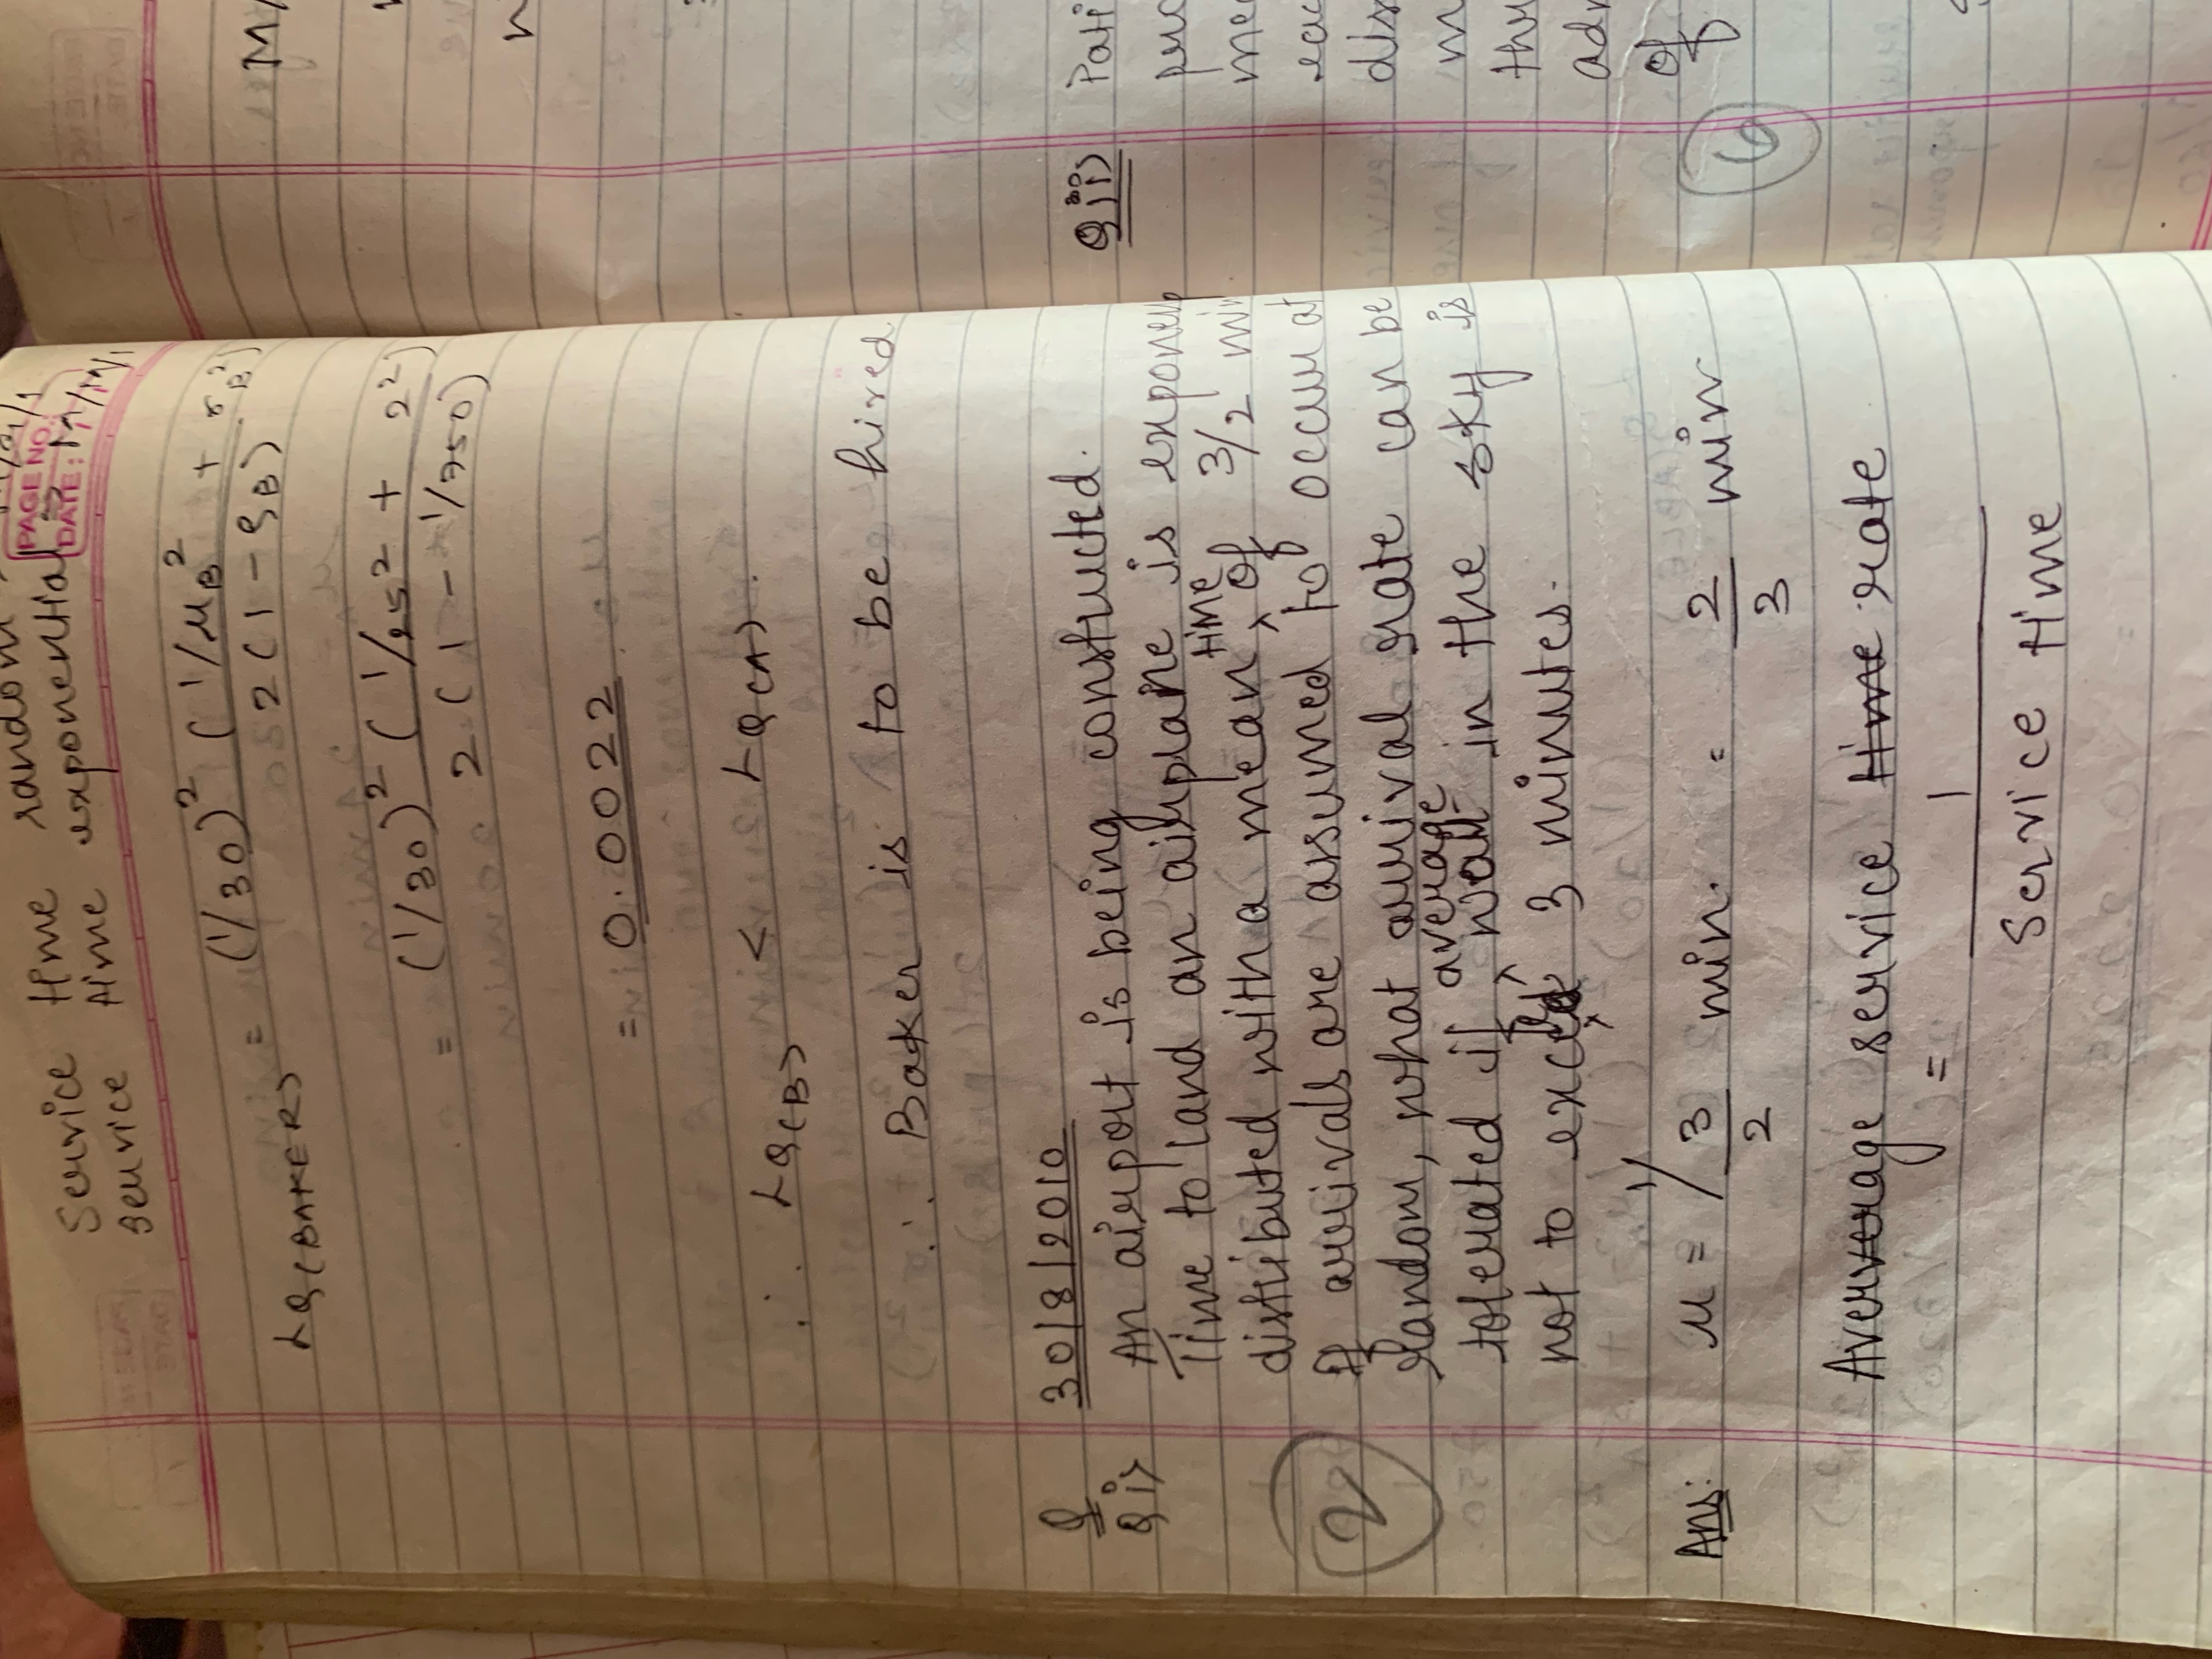 Service time random
PAGE NO.:
Service time exponential => M/M/1
DATE: / /
LQ(BAKER) = (1/30)² (1/μB² + σB²)
2(1 - ρB)
= (1/30)² (1/25² + 2²)
2(1 - 1/750)
= 0.0022
∴ LQ(B) < LQ(A).
∴ Baker is to be hired
Q 30/8/2010
Q i> An airport is being constructed.
Time to land an airplane is exponen
distributed with a mean time of 3/2 min
If arrivals are assumed to occur at
random, what arrival rate can be
tolerated if average wait in the sky is
not to exceed 3 minutes.
2
Ans: μ = 1/ 3/2 min. = 2/3 min
Average service time rate
= 1
Service time
M/
Qiii> Pati
pro
me
eac
dis
m
thr
adm
of
6